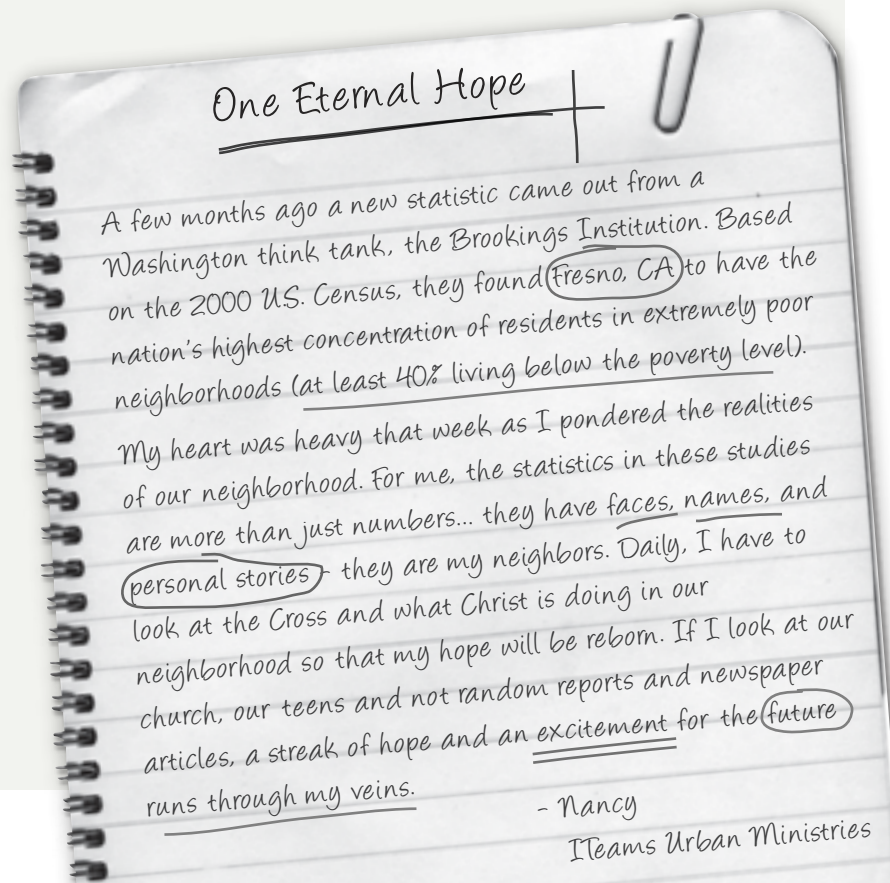 One Eternal Hope
A few months ago a new statistic came out from a
Washington think tank, the Brookings Institution. Based
on the 2000 US. Census, they found Fresno, CA to have the
nation's highest concentration of residents in extremely poor
neighborhoods (at least 40% living below the poverty level).
My heart was heavy that week as I pondered the realities
of our neighborhood. For me, the statistics in these studies
are more than just numbers... they have faces, names, and
personal stories - they are my neighbors. Daily, I have to
look at the Cross and what Christ is doing in our
neighborhood so that my hope will be reborn. If I look at our
church, our teens and not random reports and newspaper
articles, a streak of hope and an excitement for the future
runs through my veins.
- Nancy
ITeams Urban Ministries